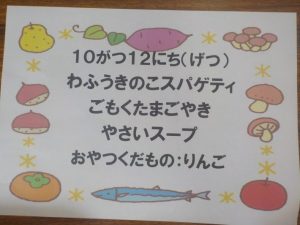 10がつ12にち(げつ)
わふうきのこスパゲティ
ごもくたまごやき
やさいスープ
おやつくだもの:りんご